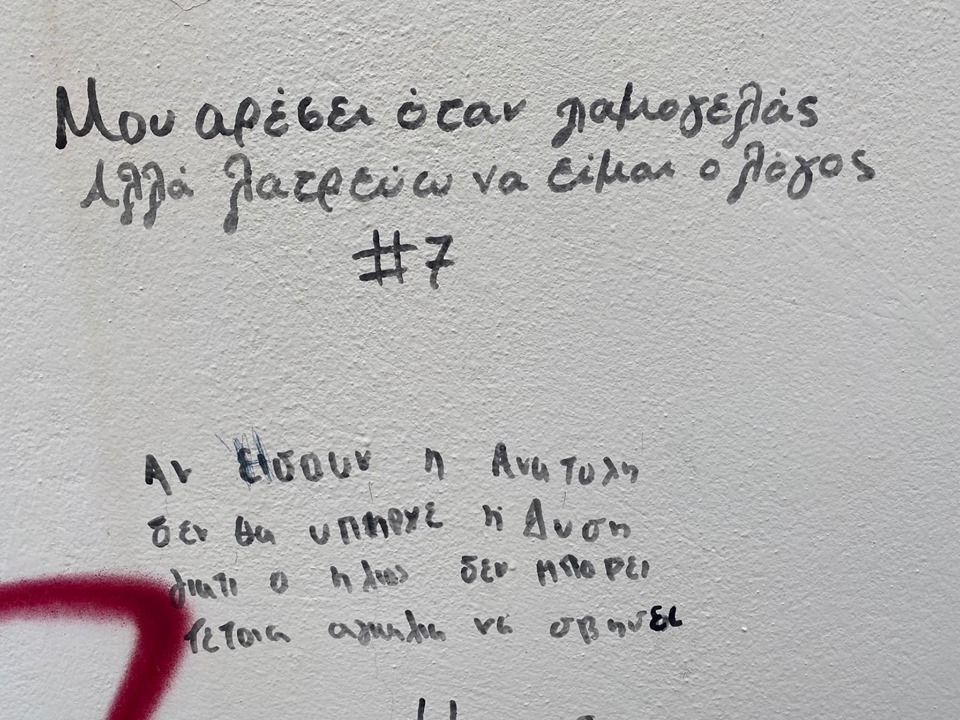 Μου αρέσει όταν χαμογελάς
Αλλά λατρεύω να είμαι ο λόγος
#7
Αν εισουν η Ανατολη
δεν θα υπηρχε η Δυση
γιατι ο ηλιος δεν μπορει
τετοια αγκαλια να σβησει